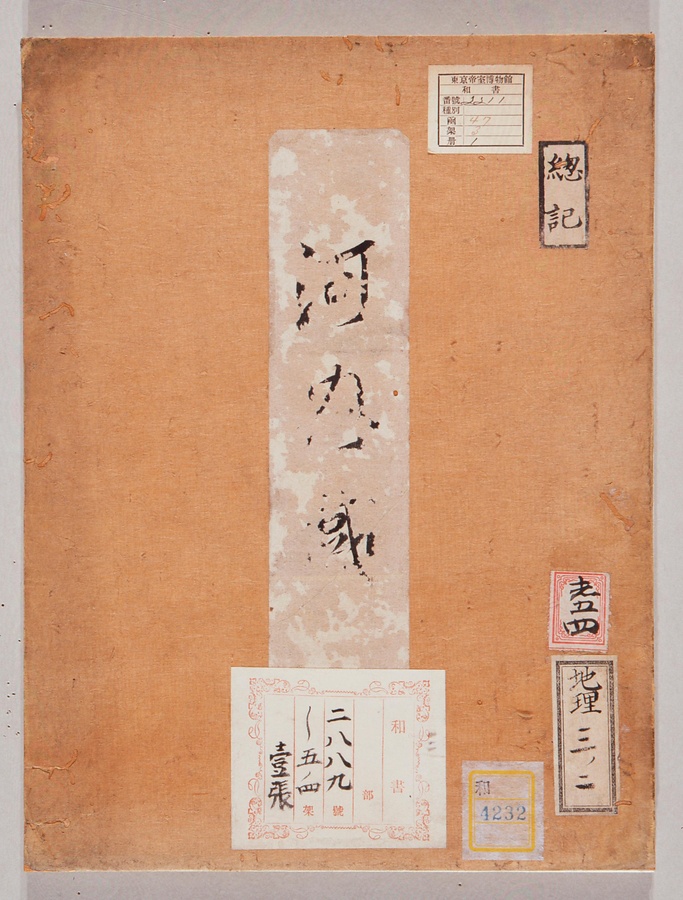 東京帝室博物館
和書
番號 3311
種別
函 47
架 3
冊 1
總記
河内國
和書
部
二八八九號
〵五ノ四架
壹張
地理
三ノ二
和
4232